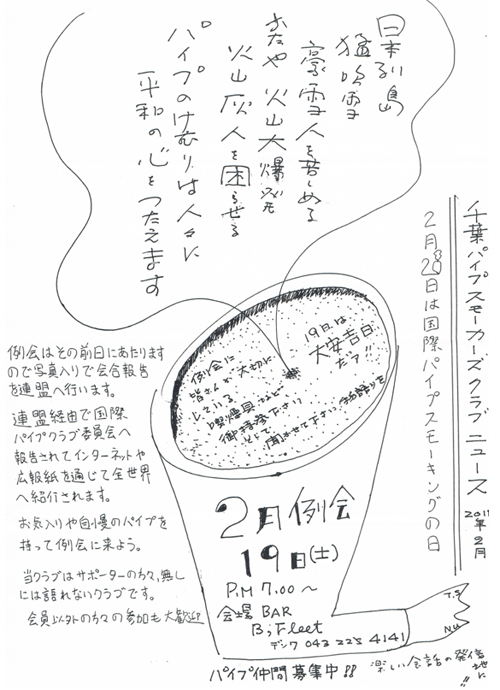 千葉パイプスモーカーズクラブニュース 2011年2月
2月20日は国際パイプスモーキングの日
日本列島
猛吹雪
豪雪人を苦しめる
またや 火山大爆発
火山灰人を困らせる
パイプのけむりは人々に
平和の心をつたえます
19日は
大安吉日
だァ!!
例会に
皆さんが大切に
している
喫煙具など
御持参下さり
聞かせて下さい
例会はその前日にあたります
ので写真入りで会合報告
を連盟へ行います。
連盟経由で国際
パイプクラブ委員会へ
報告されてインターネットや
広報紙を通じて全世界
へ紹介されます。
お気入りや自慢のパイプを
持って例会に来よう。
当クラブはサポーターの方々、無し
には語れないクラブです。
会員以外の方々の参加も大歓迎
2月例会
19日(土)
P.M 7.00〜
会場 BAR
B;Fleet
デンワ 043 225 4141
T.S
N.U
パイプ仲間募集中!!
楽しい会話の発信地に!!